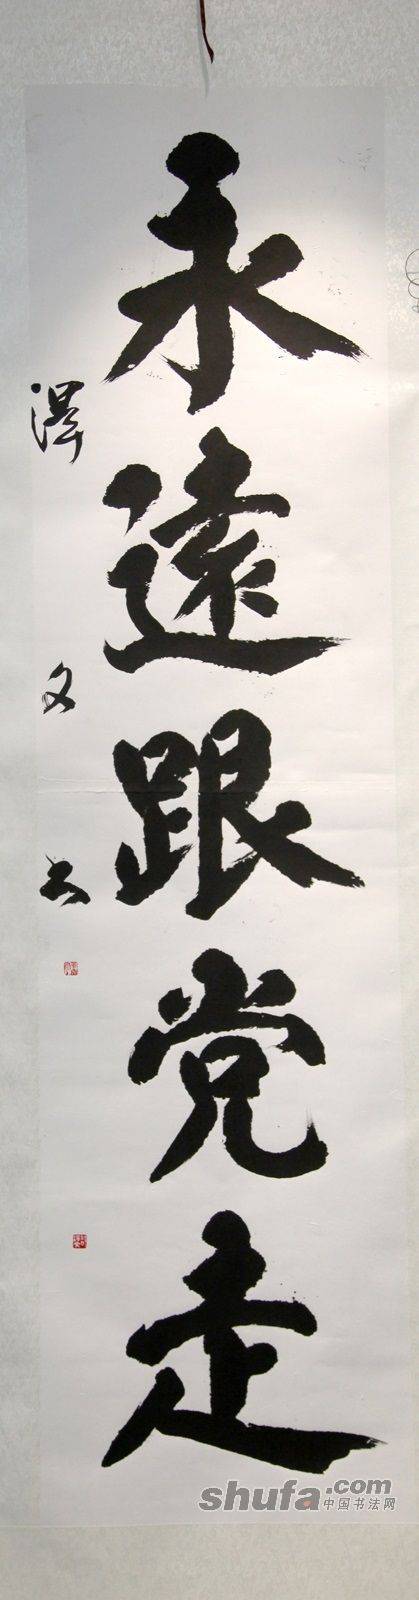 永遠跟党走
澤文书
shufa.com
中国书法网